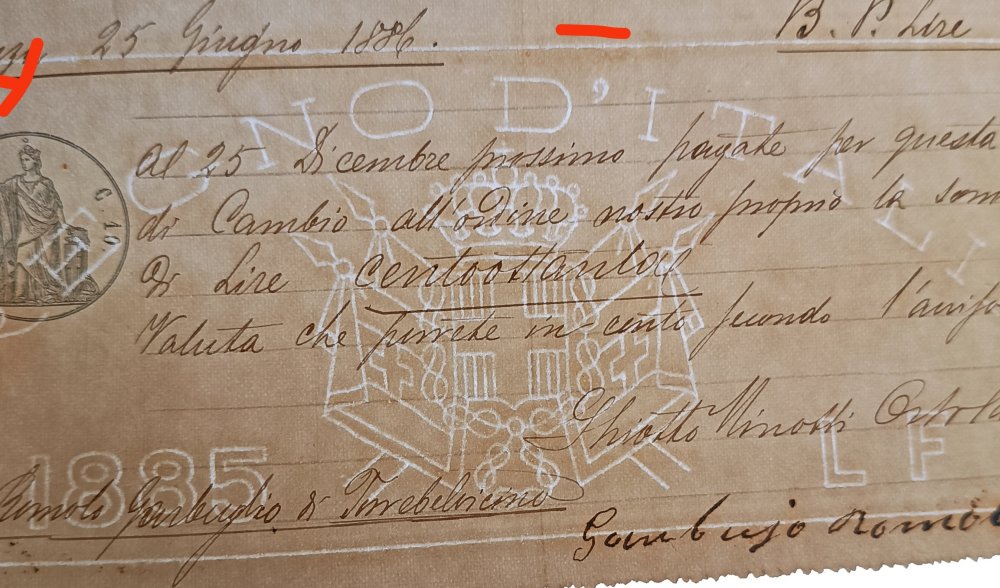 25 Giugno 1886.
B. P. Lire
REGNO D'ITALI
C 10
Al 25 Dicembre prossimo pagate per questa
di Cambio all'ordine nostro proprio la som
Di Lire centoottanta
Valuta che porrete in conto secondo l'aviso
Ghiotto Minotti Ortola
1885
L F
Romolo Garbuglio di Torrebelvicino
Garbujo Romolo